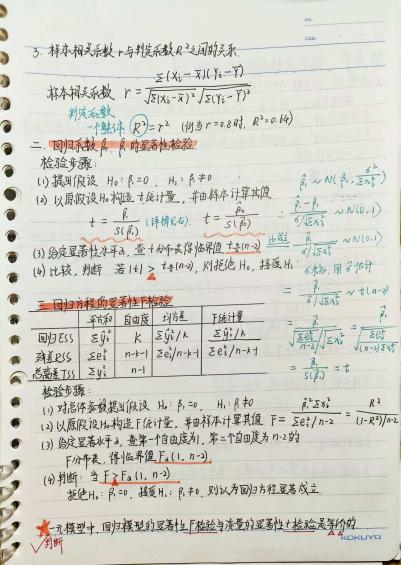 No.
Date
3. 样本相关系数 r 与判定系数 R² 之间的关系.
样本相关系数 r = Σ(Xi-X̄)(Yi-Ȳ) / √Σ(Xi-X̄)² √Σ(Yi-Ȳ)²
判定系数
一个整体 R² = r² (例当 r=0.8时, R²=0.64)
二. 回归系数 β̂0, β̂1 的显著性检验
检验步骤:
(1) 提出假设 H0: β1=0, H1: β1≠0
(2) 以原假设H0构造t统计量, 并由样本计算其值
t = β̂1 / S(β̂1) t = β̂0 / S(β̂0)
(3) 给定显著性水平α, 查t分布表得临界值 tα/2(n-2)
(4) 比较, 判断 若|t| > tα/2(n-2), 则拒绝H0, 接受H1
β̂1 ~ N(β1, σ²/Σxi²)
∴ β̂1-β1 / σ/√Σxi² ~ N(0,1)
H0成立 β̂1 / σ/√Σxi² ~ N(0,1)
σ未知, 用σ̂估计
= β̂1 / σ̂/√Σxi² ~ t(n-2)
= β̂1 / √Σei²/n-2 / √Σxi² = β̂1 / √Σei²/(n-2)Σxi²
= β̂1 / S(β̂1) = t
三. 回归方程的显著性F检验
平方和 自由度 均方差 F统计量
回归ESS Σŷi² k Σŷi²/k Σŷi²/k / Σei²/n-k-1
残差RSS Σei² n-k-1 Σei²/n-k-1
总离差TSS Σyi² n-1
检验步骤:
(1) 对总体参数提出假设 H0: β1=0, H1: β1≠0
(2) 以原假设H0构造F统计量, 并由样本计算其值 F = β̂1²Σxi² / Σei²/n-2 = R² / (1-R²)/n-2
(3) 给定显著水平α, 查第一个自由度为1, 第二个自由度为n-2的
F分布表, 得临界值Fα(1, n-2)
(4) 判断: 当F > Fα(1, n-2)
拒绝H0: β1=0, 接受H1: β1≠0, 则认为回归方程显著成立
一元模型中, 回归模型的显著性F检验与变量的显著性t检验是等价的
√判断
KOKUYO